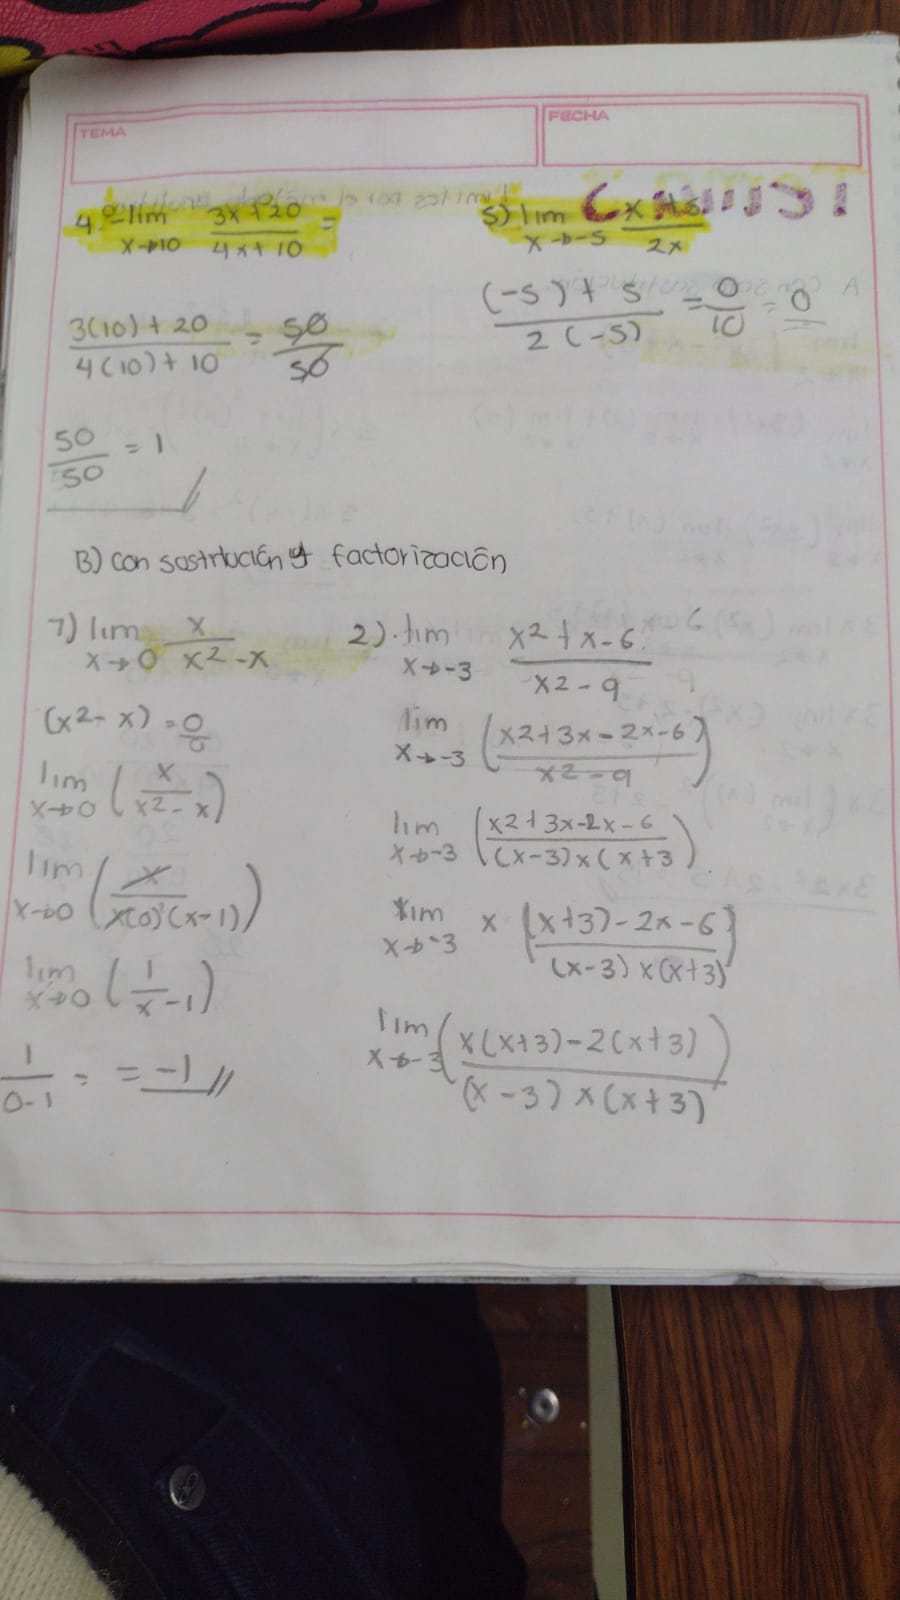 TEMA
FECHA
4º lim 3x+20 / 4x+10 =
x→10
3(10)+20 / 4(10)+10 = 50/50
50/50 = 1
5) lim x+5 / 2x
x→-5
(-5)+5 / 2(-5) = 0/10 = 0
B) con sostitución y factorización
1) lim x / x2-x
x→0
(x2-x) = 0/0
lim x→0 (x / x2-x)
lim x→0 (x / x(0)(x-1))
lim x→0 (1/x -1)
1 / 0-1 = = -1 //
2). lim x2+x-6 / x2-9
x→-3
lim x→-3 (x2+3x-2x-6 / x2-9)
lim x→-3 (x2+3x-2x-6 / (x-3)x(x+3)
lim x→-3 x (x+3)-2x-6 / (x-3)x(x+3)
lim x→-3 (x(x+3)-2(x+3) / (x-3)x(x+3))